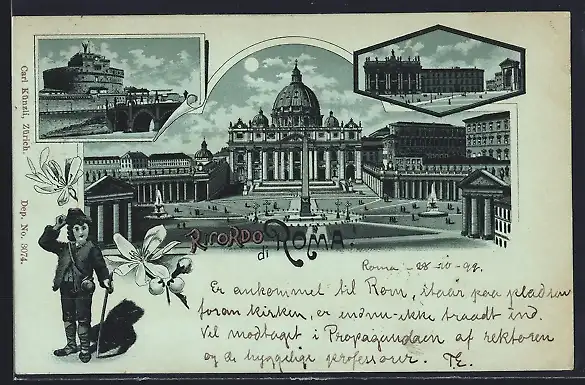 Carl Künzli, Zürich.
Dep. No. 3074.
RICORDO
di ROMA.
Roma - 28-10-99.
Er ankommet til Rom, staar paa pladsen
foran kirken, er endnu ikke traadt ind.
Vel modtaget i Propagandaen af rektoren
og de hyggelige professorer.